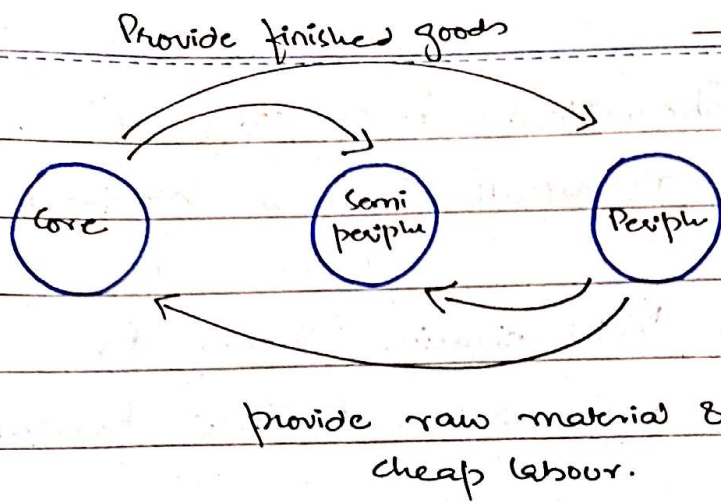 Provide finished goods
Core
Semi
periphe
Periphe
provide raw material &
cheap labour.